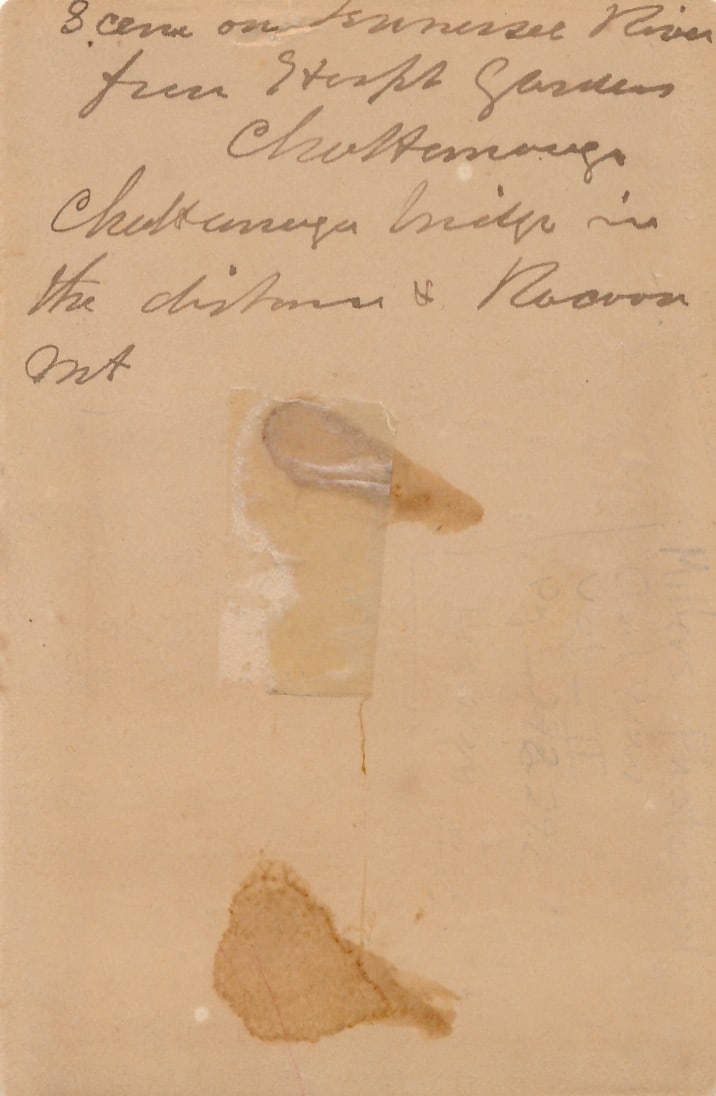 Scene on Tennessee River
from Gardens
Chattanooga
Chattanooga bridge in
the distance & Racoon
Mt